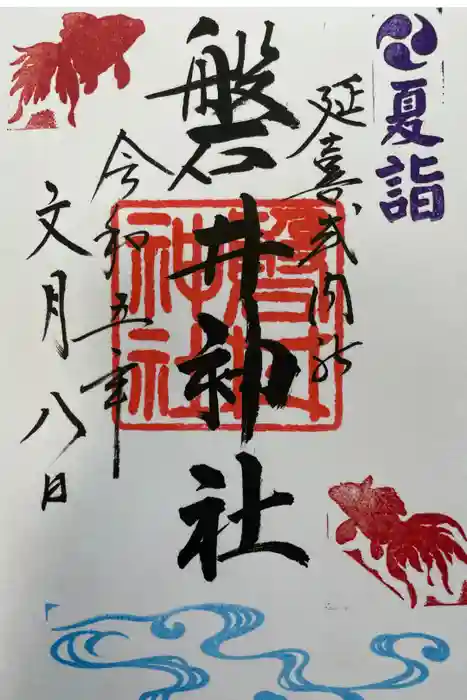 夏詣
延喜式内社
磐井神社
令和五年
文月八日
磐井神社